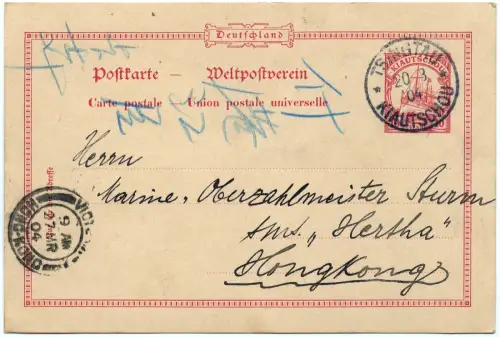 Deutschland
Postkarte - Weltpostverein
Carte postale - Union postale universelle
KIAUTSCHOU
TSINGTAU
20 3
04
KIAUTSCHOU
Herrn
Marine-Oberzahlmeister Sturm
SMS "Hertha"
Hongkong
9 AM
27 MR
04
HONG-KONG